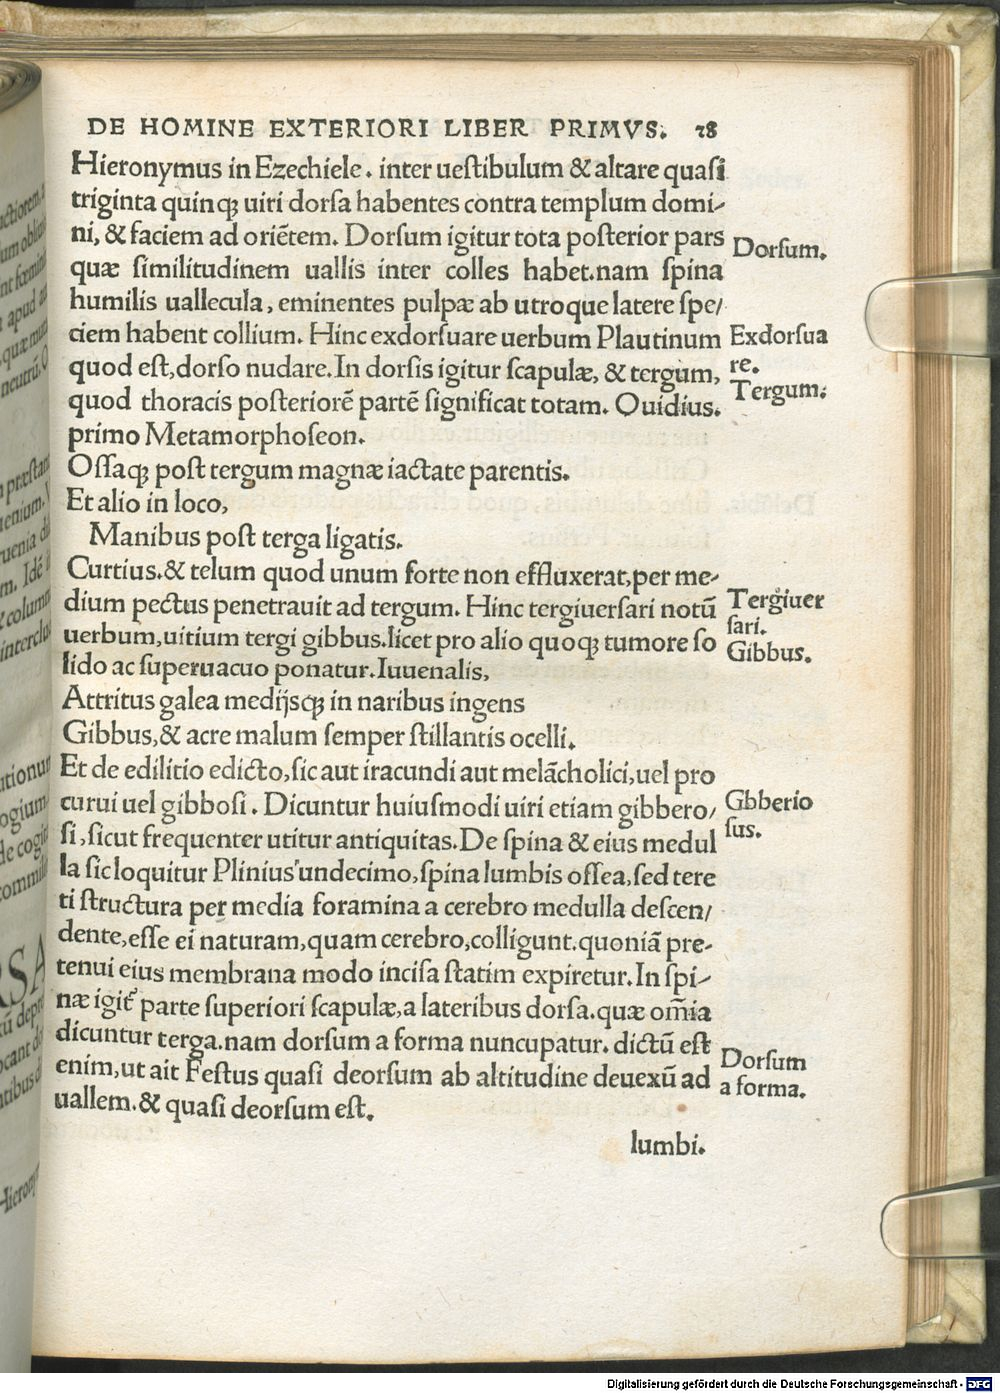 DE HOMINE EXTERIORI LIBER PRIMVS. 28
Hieronymus in Ezechiele. inter uestibulum & altare quasi
triginta quinqꝫ uiri dorsa habentes contra templum domi-
ni, & faciem ad oriẽtem. Dorsum igitur tota posterior pars
Dorsum.
quæ similitudinem uallis inter colles habet.nam spina
humilis uallecula, eminentes pulpæ ab utroque latere spe/
ciem habent collium. Hinc exdorsuare uerbum Plautinum
Exdorsua
quod est,dorso nudare. In dorsis igitur scapulæ, & tergum,
re.
Tergum:
quod thoracis posteriorẽ partẽ significat totam. Ouidius.
primo Metamorphoseon.
Ossaqꝫ post tergum magnæ iactate parentis.
Et alio in loco,
Manibus post terga ligatis.
Curtius.& telum quod unum forte non effluxerat,per me-
dium pectus penetrauit ad tergum. Hinc tergiuersari notũ
Tergiuer
sari.
uerbum,uitium tergi gibbus.licet pro alio quoqꝫ tumore so
Gibbus.
lido ac superuacuo ponatur.Iuuenalis,
Attritus galea medijsqꝫ in naribus ingens
Gibbus,& acre malum semper stillantis ocelli.
Et de edilitio edicto,sic aut iracundi aut melãcholici,uel pro
curui uel gibbosi. Dicuntur huiusmodi uiri etiam gibbero/
Gbberio
sus.
si,sicut frequenter utitur antiquitas.De spina & eius medul
la sic loquitur Plinius undecimo,spina lumbis ossea,sed tere
ti structura per media foramina a cerebro medulla descen/
dente,esse ei naturam,quam cerebro,colligunt.quoniã præ-
tenui eius membrana modo incisa statim expiretur.In spi-
næ igit᷑ parte superiori scapulæ,a lateribus dorsa.quæ om̃ia
dicuntur terga.nam dorsum a forma nuncupatur. dictũ est
Dorsum
enim,ut ait Festus quasi deorsum ab altitudine deuexũ ad
a forma.
uallem.& quasi deorsum est.
lumbi.
Digitalisierung gefördert durch die Deutsche Forschungsgemeinschaft - DFG